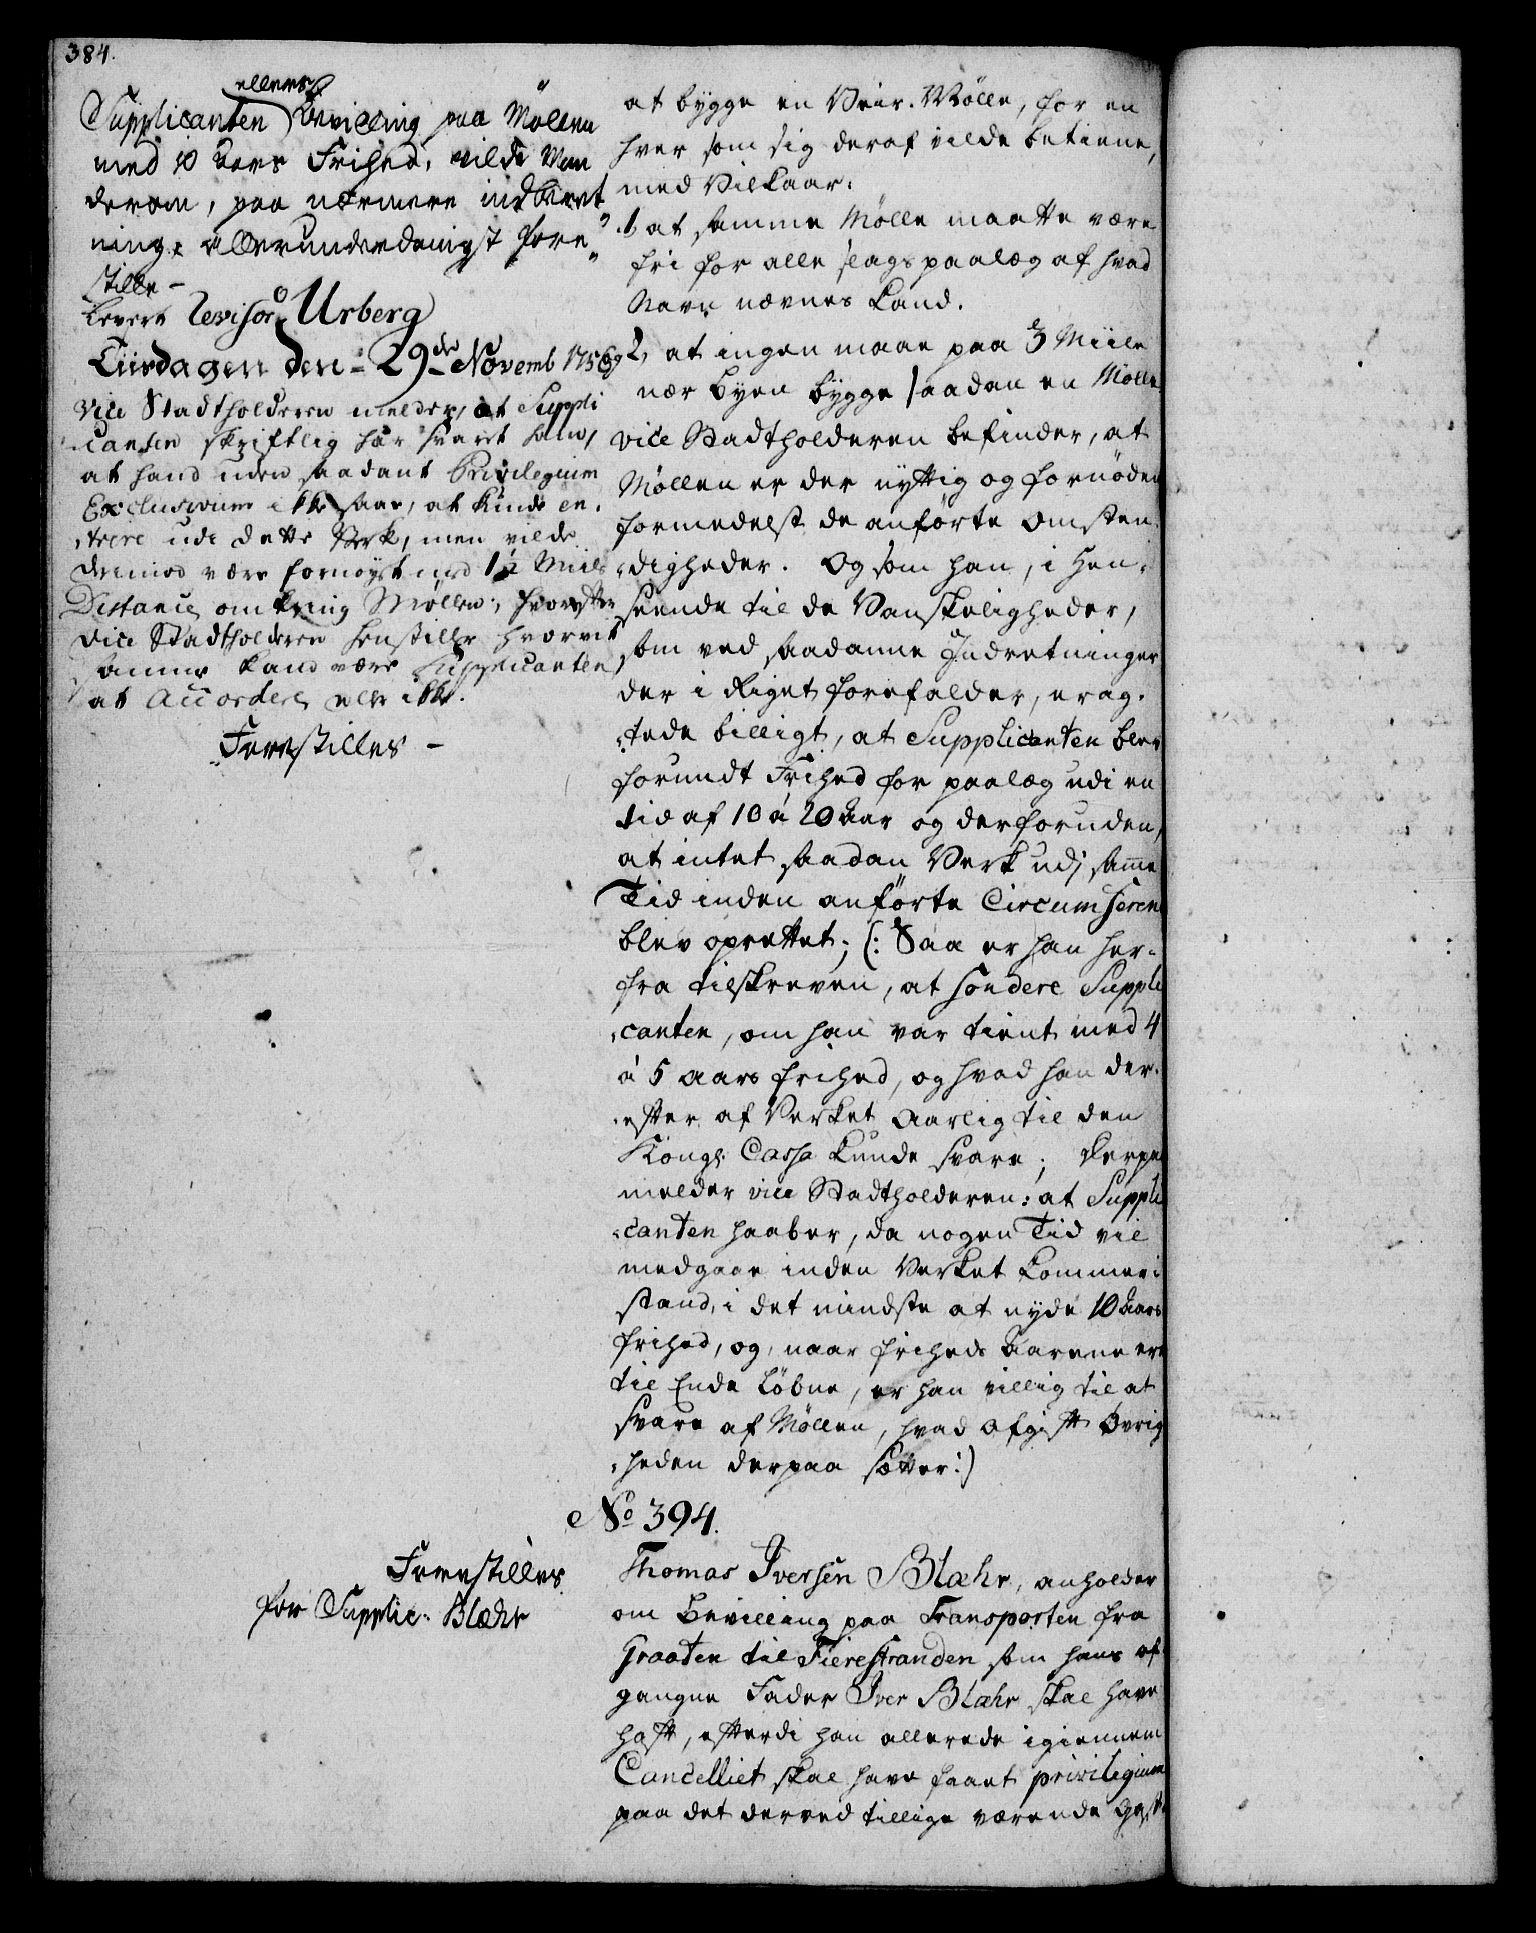 384.
ellers
Supplicanten Bevilling paa Møllen
med 10 Aars Frihed, vilde Man
derom, paa nærmere indberet
ning, allerunderdanigst fore„
stille –
Levert Revisor Urberg
Tiirsdagen den 29de Novemb 1756
Vice Stadtholderen melder, at Suppli
canten skriftlig har svaret ham,
at hand uden saadant Privilegium
Exclusivum ikke saae, at kunde en„
trere udi dette Verk, men vilde
derimod være fornøyet med 1½ Miils
Distance omkring Møllen; hvorefter
Vice Stadtholderen henstiller hvorvidt
samme kand være Supplicanten
at Accordere eller ikke.
Forestilles –
at bygge en Veir-Mølle, for en
hver som sig deraf vilde betiene,
med Vilkaar:
1, at samme Mølle maatte være
fri for alle slags paalæg af hvad
Navn nævnes kand.
2, at ingen maae paa 3 Miile
nær byen bygge saadan en Mølle
Vice Stadtholderen befinder, at
Møllen er der nyttig og fornøden
formedelst de anførte omsten
digheder. Og som han, i Hen„
seende til de Vanskeligheder,
som ved saadanne Indretninger
der i Riget forefalder, erag„
tede billigt, at Supplicanten blev
forundt Frihed for paalæg udi en
tid af 10 à 20 Aar og derforuden,
at intet saadan Verk udj samme
Tid inden anførte Circumferen
blev oprettet; (: Saa er han her„
fra tilskreven, at sondere Suppli
canten, om han var tient med 4
à 5 Aars frihed, og hvad han der„
efter af Verket Aarlig til den
Kongl. Cassa kunde svare; derpaa
melder vice Stadtholderen: at Suppli
canten haaber, da nogen Tid vil
medgaae inden Verket kommer i
stand, i det mindste at nyde 10 Aars
frihed, og, naar friheds Aarene ere
til Ende løbne, er han villig til at
svare af Møllen, hvad Afgift Øvrig
heden derpaa sætter:)
No 394.
Forestilles
for Supplic: Blæhr
Thomas Iversen Blæhr, anholder
om bevilling paa Transporten fra
Graaten til Fierestranden som hans af„
gangne Fader Iver Blæhr skal have
haft, efterdi han allerede igiennem
Cancelliet skal have faaet privilegium
paa det derved tillige værende Gæst